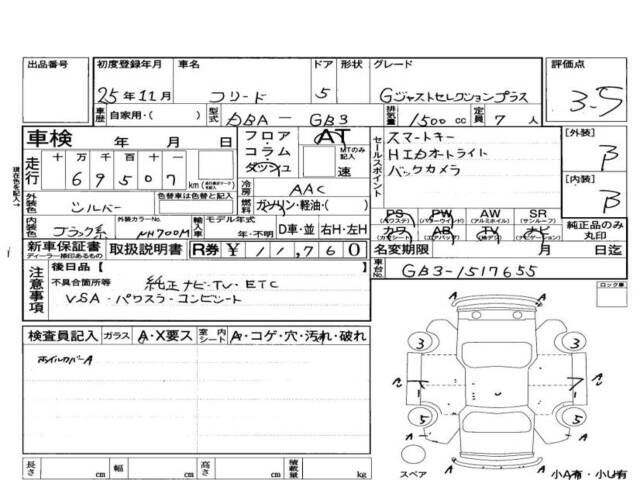 出品番号 初度登録年月 車名 ドア 形状 グレード 評価点
25年11月 フリード 5 Gジャストセレクションプラス 3.5
車歴 自家用・( ) 型式 DBA-GB3 排気量 1500cc 定員 7人
車検 年 月 日 フロア・コラム・ダッシュ AT MTのみ記入 速
セールスポイント スマートキー
HIDオートライト
バックカメラ
[外装] B
[内装] B
走行 十 万 千 百 十 一
69507 km
現在色を記入→
外装色 シルバー 色替車は色替と記入
冷房 AAC
燃料 ガソリン・軽油・( )
内装色 ブラック系 外装カラーNo. NH700M 輸入車 モデル年式 年・不明 D車・並 右H・左H
PS (パワステ) PW (パワーウインド) AW (アルミホイル) SR (サンルーフ)
カワ (カワシート) AB (エアバッグ) TV (純テレ) ナビ (ナビゲーション)
純正品のみ丸印
新車保証書 ディーラー捺印あるもの 取扱説明書 R券 ¥11,760
名変期限 月 日迄
注意事項 後日品【
不具合箇所等 純正ナビ・TV・ETC
VSA・パワスラ・コンビシート
車台No. GB3-1517655
ロック車
検査員記入 ガラス A・X要ス 室内シート A・コゲ・穴・汚れ・破れ
ホイルカバーA
A A
3 3
A A A
5 5
A A A
スペア 小A有・小U有
長さ cm 幅 cm 高さ cm 積載量 kg